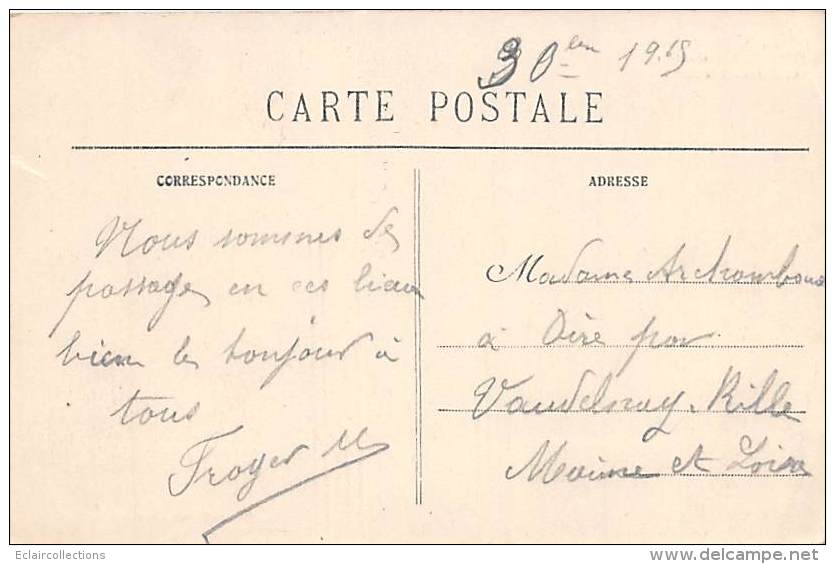 30 1915
CARTE POSTALE
CORRESPONDANCE
ADRESSE
Nous sommes de
passage en ces lieux
bien le bonjour à
tous
Froger
Madame Archambault
à Oiré par
Vaudelnay. Rillé
Maine et Loire
Eclaircollections
www.delcampe.net